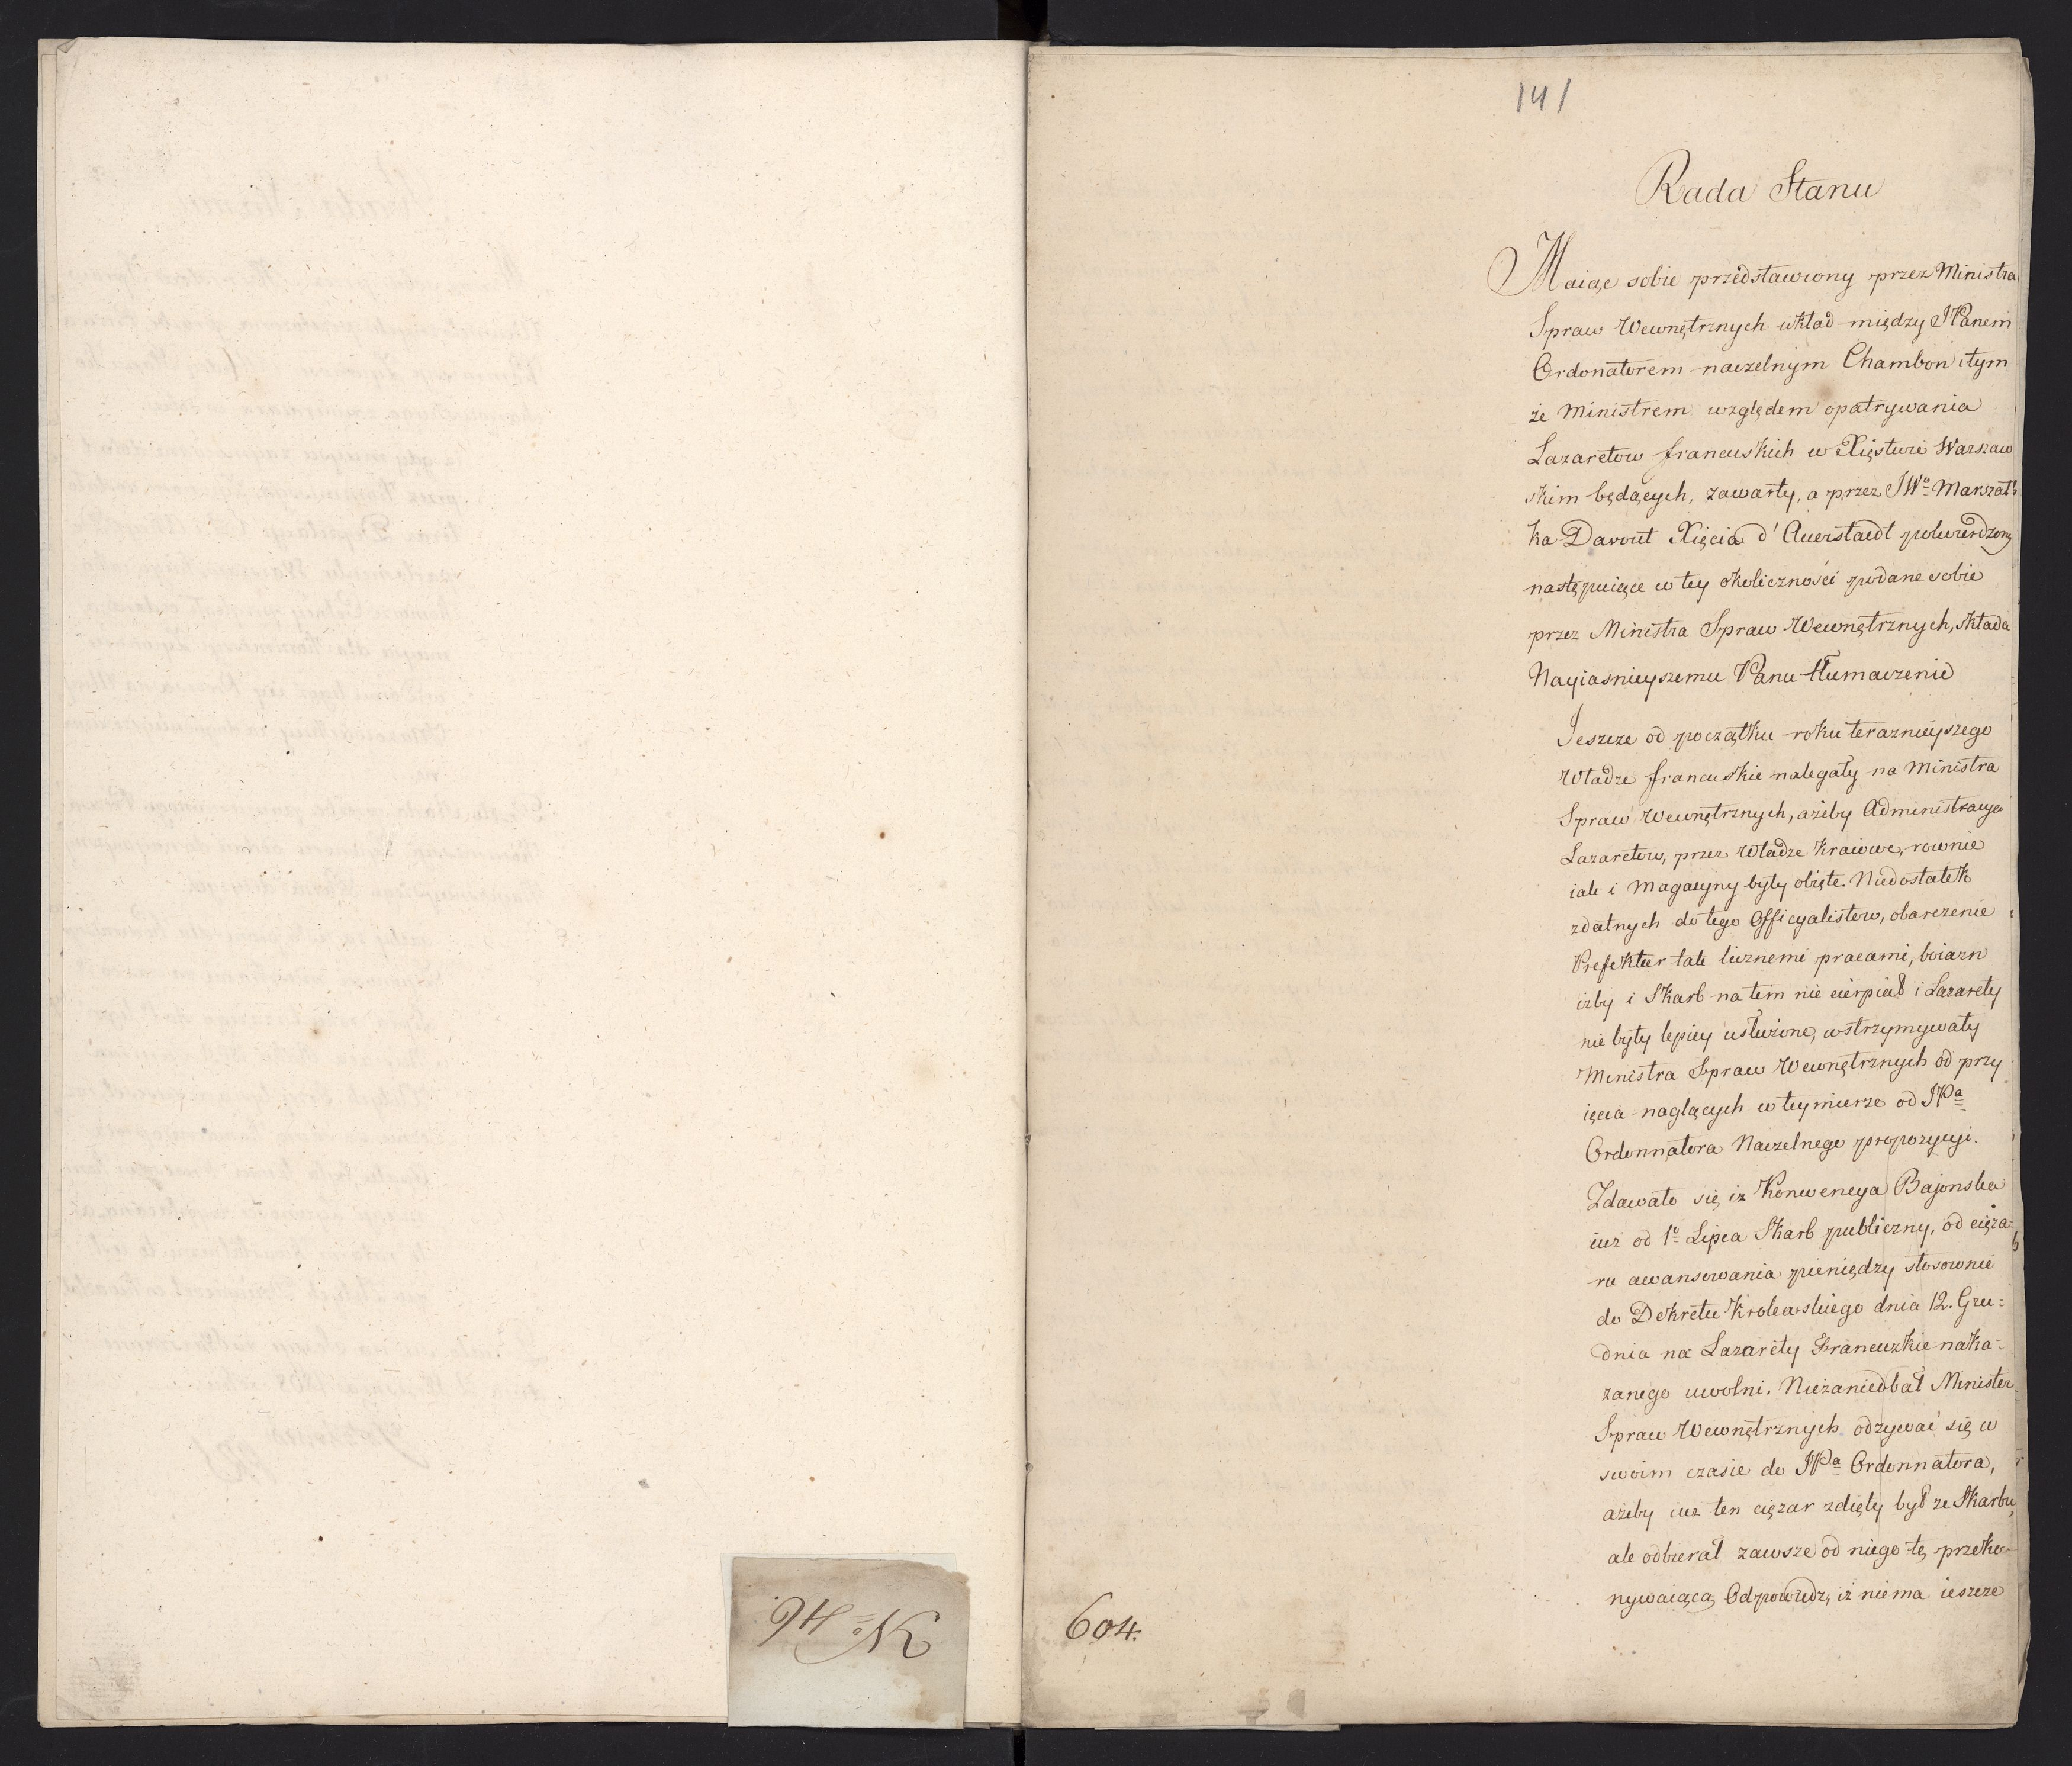 141
Rada Stanu
Maiąc sobie przedstawiony przez Ministra
Spraw Wewnętrznych układ między JPanem
Ordonatorem naczelnym Chambon i tym
że Ministrem względem opatrywania
Lazaretow francuskich w Xięstwie Warszaw
skim będących, zawarty, a przez JWo Marszał
ka Davout Xięcia d'Auerstaedt potwierdzony
następuiące w tey okoliczności podane sobie
przez Ministra Spraw Wewnętrznych, składa
Nayiasnieyszemu Panu tłumaczenie
Jeszcze od początku roku teraznieyszego
Władze francuskie nalegały na Ministra
Spraw Wewnętrznych, ażeby Administracya
Lazaretow, przez Władze kraiowe, rownie
iak i Magazyny były obięte. Niedostatek
zdatnych do tego Officyalistow, obarczenie
Prefektur tak licznemi pracami, boiazn
iżby i Skarb na tem nie cierpiał i Lazarety
nie były lepiey usłużone, wstrzymywały
Ministra Spraw Wewnętrznych od przy
ięcia naglących w tey mierze od JPa
Ordonnatora Naczelnego propozycyi.
Zdawało się iż Konwencya Bajonska
iuż od 1o Lipca Skarb publiczny, od cięża=
ru awansowania pieniędzy stosownie
do Dekretu Krolewskiego dnia 12. Gru=
dnia na Lazarety Francuzkie naka=
zanego uwolni. Niezaniedbał Minister
Spraw Wewnętrznych odzywać się w
swoim czasie do JPa Ordonnatora,
ażeby iuz ten ciężar zdięty był ze Skarbu,
ale odbierał zawsze od niego tę przeko=
nywaiącą Odpowiedz, iż niema ieszcze
604.